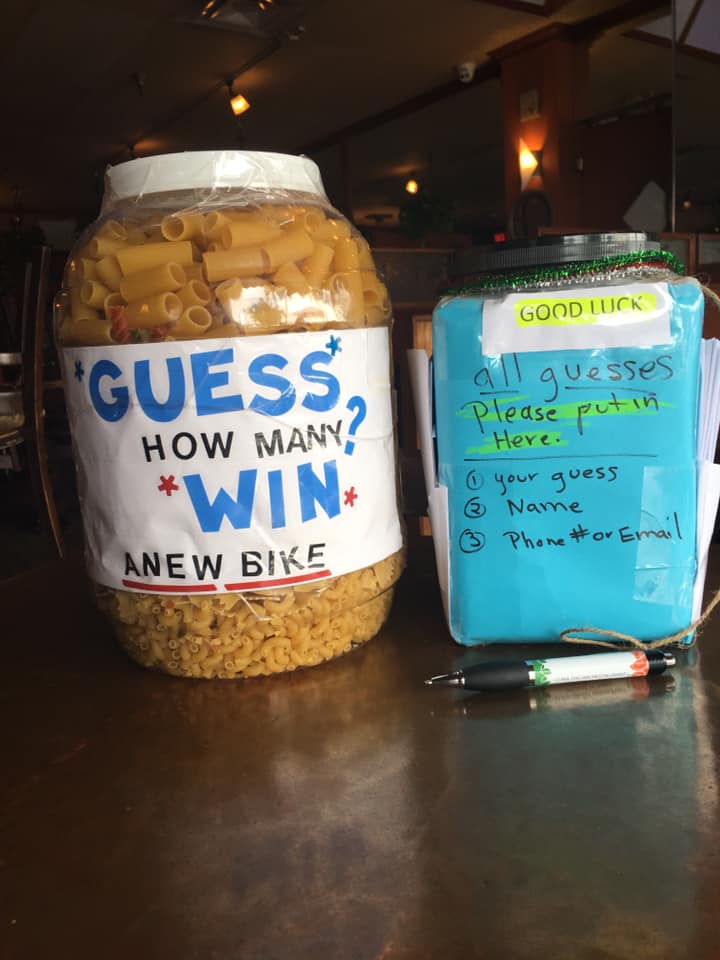 *GUESS*
HOW MANY?
*WIN*
ANEW BIKE
GOOD LUCK
all guesses
Please put in
Here.
① your guess
② Name
③ Phone # or Email